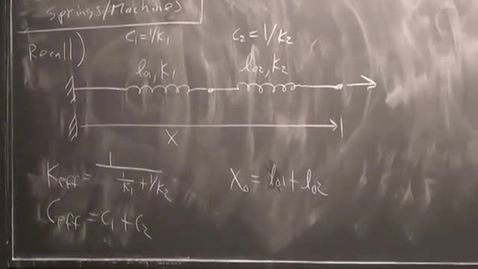 Springs/Machines
Recall)
C₁=1/K₁ C₂=1/K₂
l₀₁,K₁ l₀₂,K₂
X
K_eff = 1/(1/K₁+1/K₂) X₀=l₀₁+l₀₂
C_eff=C₁+C₂